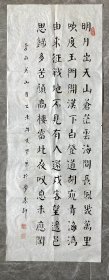 明月出天山蒼茫雲海間長風幾萬里
吹度玉門關漢下白登道胡窺青海灣
由來征戰地不見有人還戍客望邊邑
思歸多苦顏高樓當此夜嘆息未應閑